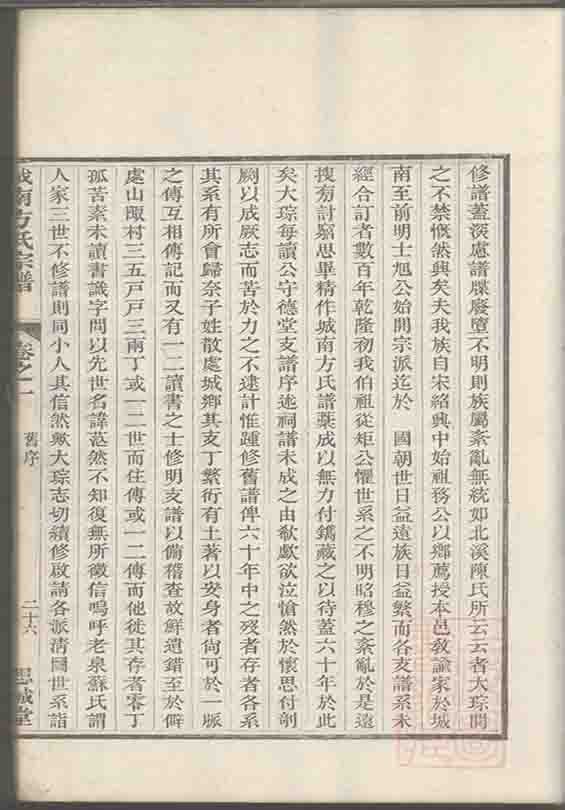 修譜蓋深慮譜牒廢墮不明則族屬紊亂無統如北溪陳氏所云云者大琮閱
之不禁慨然興矣夫我族自宋紹興中始祖務公以鄉薦授本邑敎諭家於城
南至前明士旭公始開宗派迄於 國朝世日益遠族日益繁而各支譜系未
經合訂者數百年乾隆初我伯祖從矩公懼世系之不明昭穆之紊亂於是遠
搜旁討覃思畢精作城南方氏譜藁成以無力付鐫藏之以待蓋六十年於此
矣大琮每讀公守德堂支譜序述祠譜未成之由欷歔欲泣愴然於懷思付剞
劂以成厥志而苦於力之不逮計惟踵修舊譜俾六十年中之歿者存者各系
其系有所會歸奈子姓散處城鄉其支丁繁衍有土著以安身者尙可於一脈
之傳互相傳記而又有一二讀書之士修明支譜以備稽查故鮮遺錯至於僻
處山陬村三五戸戸三兩丁或一二世而住傳或一二傳而他徙其存者零丁
孤苦素未讀書識字問以先世名諱茫然不知復無所徵信嗚呼老泉蘇氏謂
人家三世不修譜則同小人其信然歟大琮志切續修啟請各派淸圖世系詣
城南方氏宗譜 卷之一 舊序 二十六 思誠堂